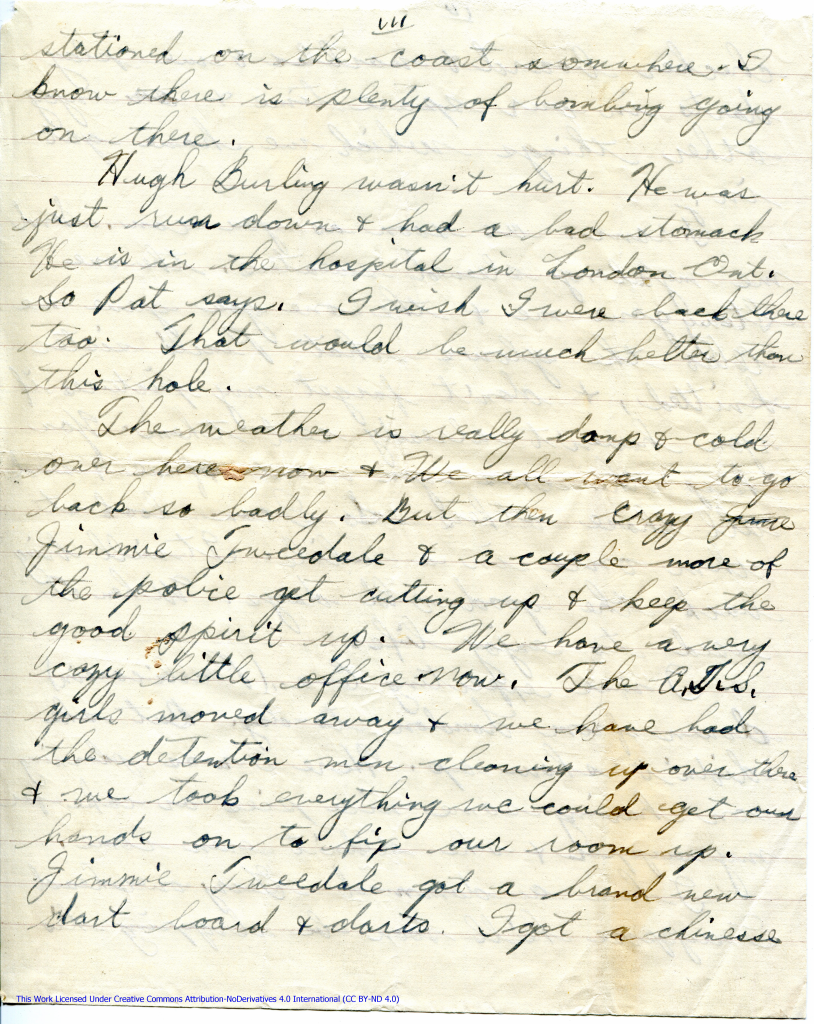 III
stationed on the coast somwhere. I
know there is plenty of bombing going
on there.
Hugh Burling wasn't hurt. He was
just run down & had a bad stomack
He is in the hospital in London Ont.
So Pat says. I wish I were back there
too. That would be much better than
this hole.
The weather is really damp & cold
over here now & We all want to go
back so badly. But then crazy
Jimmie Tweedale & a couple more of
the police get cutting up & keep the
good spirit up. We have a very
cozy little office now. The A.T.S.
girls moved away & we have had
the detention men cleaning up over there
& we took everything we could get our
hands on to fix our room up.
Jimmie Tweedale got a brand new
dart board & darts. I got a chinesse
This Work Licensed Under Creative Commons Attribution-NoDerivatives 4.0 International (CC BY-ND 4.0)